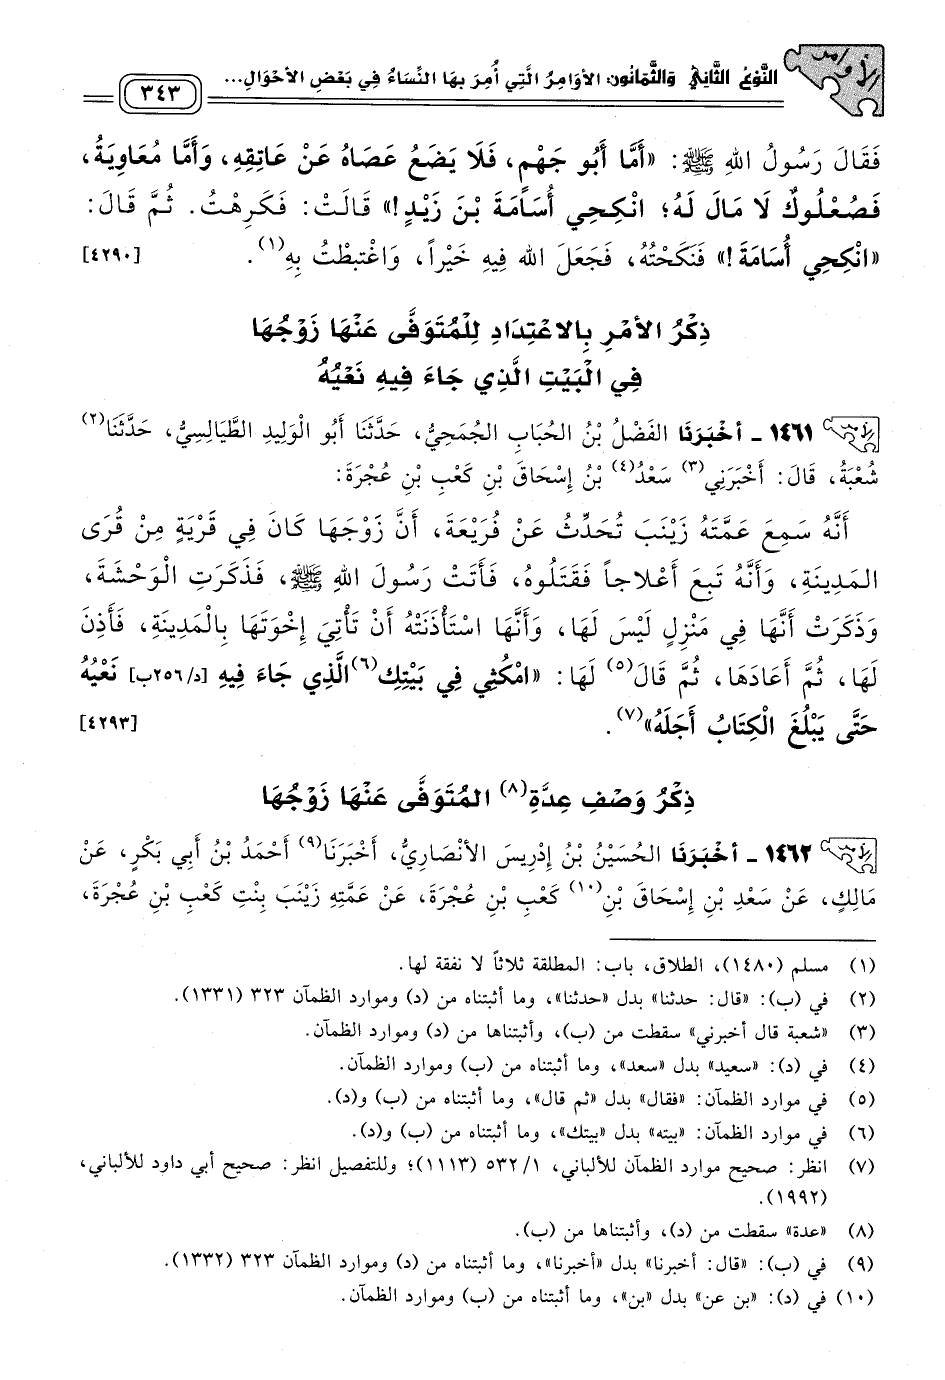 الأوامر
النَّوْعُ الثَّانِي وَالثَّمَانُونَ: الأَوَامِرُ الَّتِي أُمِرَ بِهَا النِّسَاءُ فِي بَعْضِ الأَحْوَالِ...
٣٤٣
فَقَالَ رَسُولُ اللهِ ﷺ: «أَمَّا أَبُو جَهْمٍ، فَلَا يَضَعُ عَصَاهُ عَنْ عَاتِقِهِ، وَأَمَّا مُعَاوِيَةُ،
فَصُعْلُوكٌ لَا مَالَ لَهُ؛ انْكِحِي أُسَامَةَ بْنَ زَيْدٍ!» قَالَتْ: فَكَرِهْتُ. ثُمَّ قَالَ:
«انْكِحِي أُسَامَةَ!» فَنَكَحْتُهُ، فَجَعَلَ اللهُ فِيهِ خَيْراً، وَاغْتبَطْتُ بِهِ(١). [٤٢٩٠]
ذِكْرُ الأَمْرِ بِالاعْتِدَادِ لِلْمُتَوَفَّى عَنْهَا زَوْجُهَا
فِي الْبَيْتِ الَّذِي جَاءَ فِيهِ نَعْيُهُ
الأوامر ١٤٦١ - أَخْبَرَنَا الفَضْلُ بْنُ الحُبَابِ الجُمَحِيُّ، حَدَّثَنَا أَبُو الْوَلِيدِ الطَّيَالِسِيُّ، حَدَّثَنَا(٢)
شُعْبَةُ، قَالَ: أَخْبَرَنِي(٣) سَعْدُ(٤) بْنُ إِسْحَاقَ بْنِ كَعْبِ بْنِ عُجْرَةَ:
أَنَّهُ سَمِعَ عَمَّتَهُ زَيْنَبَ تُحَدِّثُ عَنْ فُرَيْعَةَ، أَنَّ زَوْجَهَا كَانَ فِي قَرْيَةٍ مِنْ قُرَى
المَدِينَةِ، وَأَنَّهُ تَبِعَ أَعْلاجاً فَقَتَلُوهُ، فَأَتَتْ رَسُولَ اللهِ ﷺ، فَذَكَرَتِ الْوَحْشَةَ،
وَذَكَرَتْ أَنَّهَا فِي مَنْزِلٍ لَيْسَ لَهَا، وَأَنَّهَا اسْتَأْذَنَتْهُ أَنْ تَأْتِيَ إِخْوَتَهَا بِالْمَدِينَةِ، فَأَذِنَ
لَهَا، ثُمَّ أَعَادَهَا، ثُمَّ قَالَ(٥) لَهَا: «امْكُثِي فِي بَيْتِكِ(٦) الَّذِي جَاءَ فِيهِ [د/٢٥٦ب] نَعْيُهُ
حَتَّى يَبْلُغَ الْكِتَابُ أَجَلَهُ»(٧). [٤٢٩٣]
ذِكْرُ وَصْفِ عِدَّةِ(٨) المُتَوَفَّى عَنْهَا زَوْجُهَا
الأوامر ١٤٦٢ - أَخْبَرَنَا الحُسَيْنُ بْنُ إِدْرِيسَ الأَنْصَارِيُّ، أَخْبَرَنَا(٩) أَحْمَدُ بْنُ أَبِي بَكْرٍ، عَنْ
مَالِكٍ، عَنْ سَعْدِ بْنِ إِسْحَاقَ بْنِ(١٠) كَعْبِ بْنِ عُجْرَةَ، عَنْ عَمَّتِهِ زَيْنَبَ بِنْتِ كَعْبِ بْنِ عُجْرَةَ،
(١) مسلم (١٤٨٠)، الطلاق، باب: المطلقة ثلاثاً لا نفقة لها.
(٢) في (ب): «قال: حدثنا» بدل «حدثنا»، وما أثبتناه من (د) وموارد الظمآن ٣٢٣ (١٣٣١).
(٣) «شعبة قال أخبرني» سقطت من (ب)، وأثبتناها من (د) وموارد الظمآن.
(٤) في (د): «سعيد» بدل «سعد»، وما أثبتناه من (ب) وموارد الظمآن.
(٥) في موارد الظمآن: «فقال» بدل «ثم قال»، وما أثبتناه من (ب) و(د).
(٦) في موارد الظمآن: «بيته» بدل «بيتك»، وما أثبتناه من (ب) و(د).
(٧) انظر: صحيح موارد الظمآن للألباني، ١/ ٥٣٢ (١١١٣)؛ وللتفصيل انظر: صحيح أبي داود للألباني،
(١٩٩٢).
(٨) «عدة» سقطت من (د)، وأثبتناها من (ب).
(٩) في (ب): «قال: أخبرنا» بدل «أخبرنا»، وما أثبتناه من (د) وموارد الظمآن ٣٢٣ (١٣٣٢).
(١٠) في (د): «بن عن» بدل «بن»، وما أثبتناه من (ب) وموارد الظمآن.